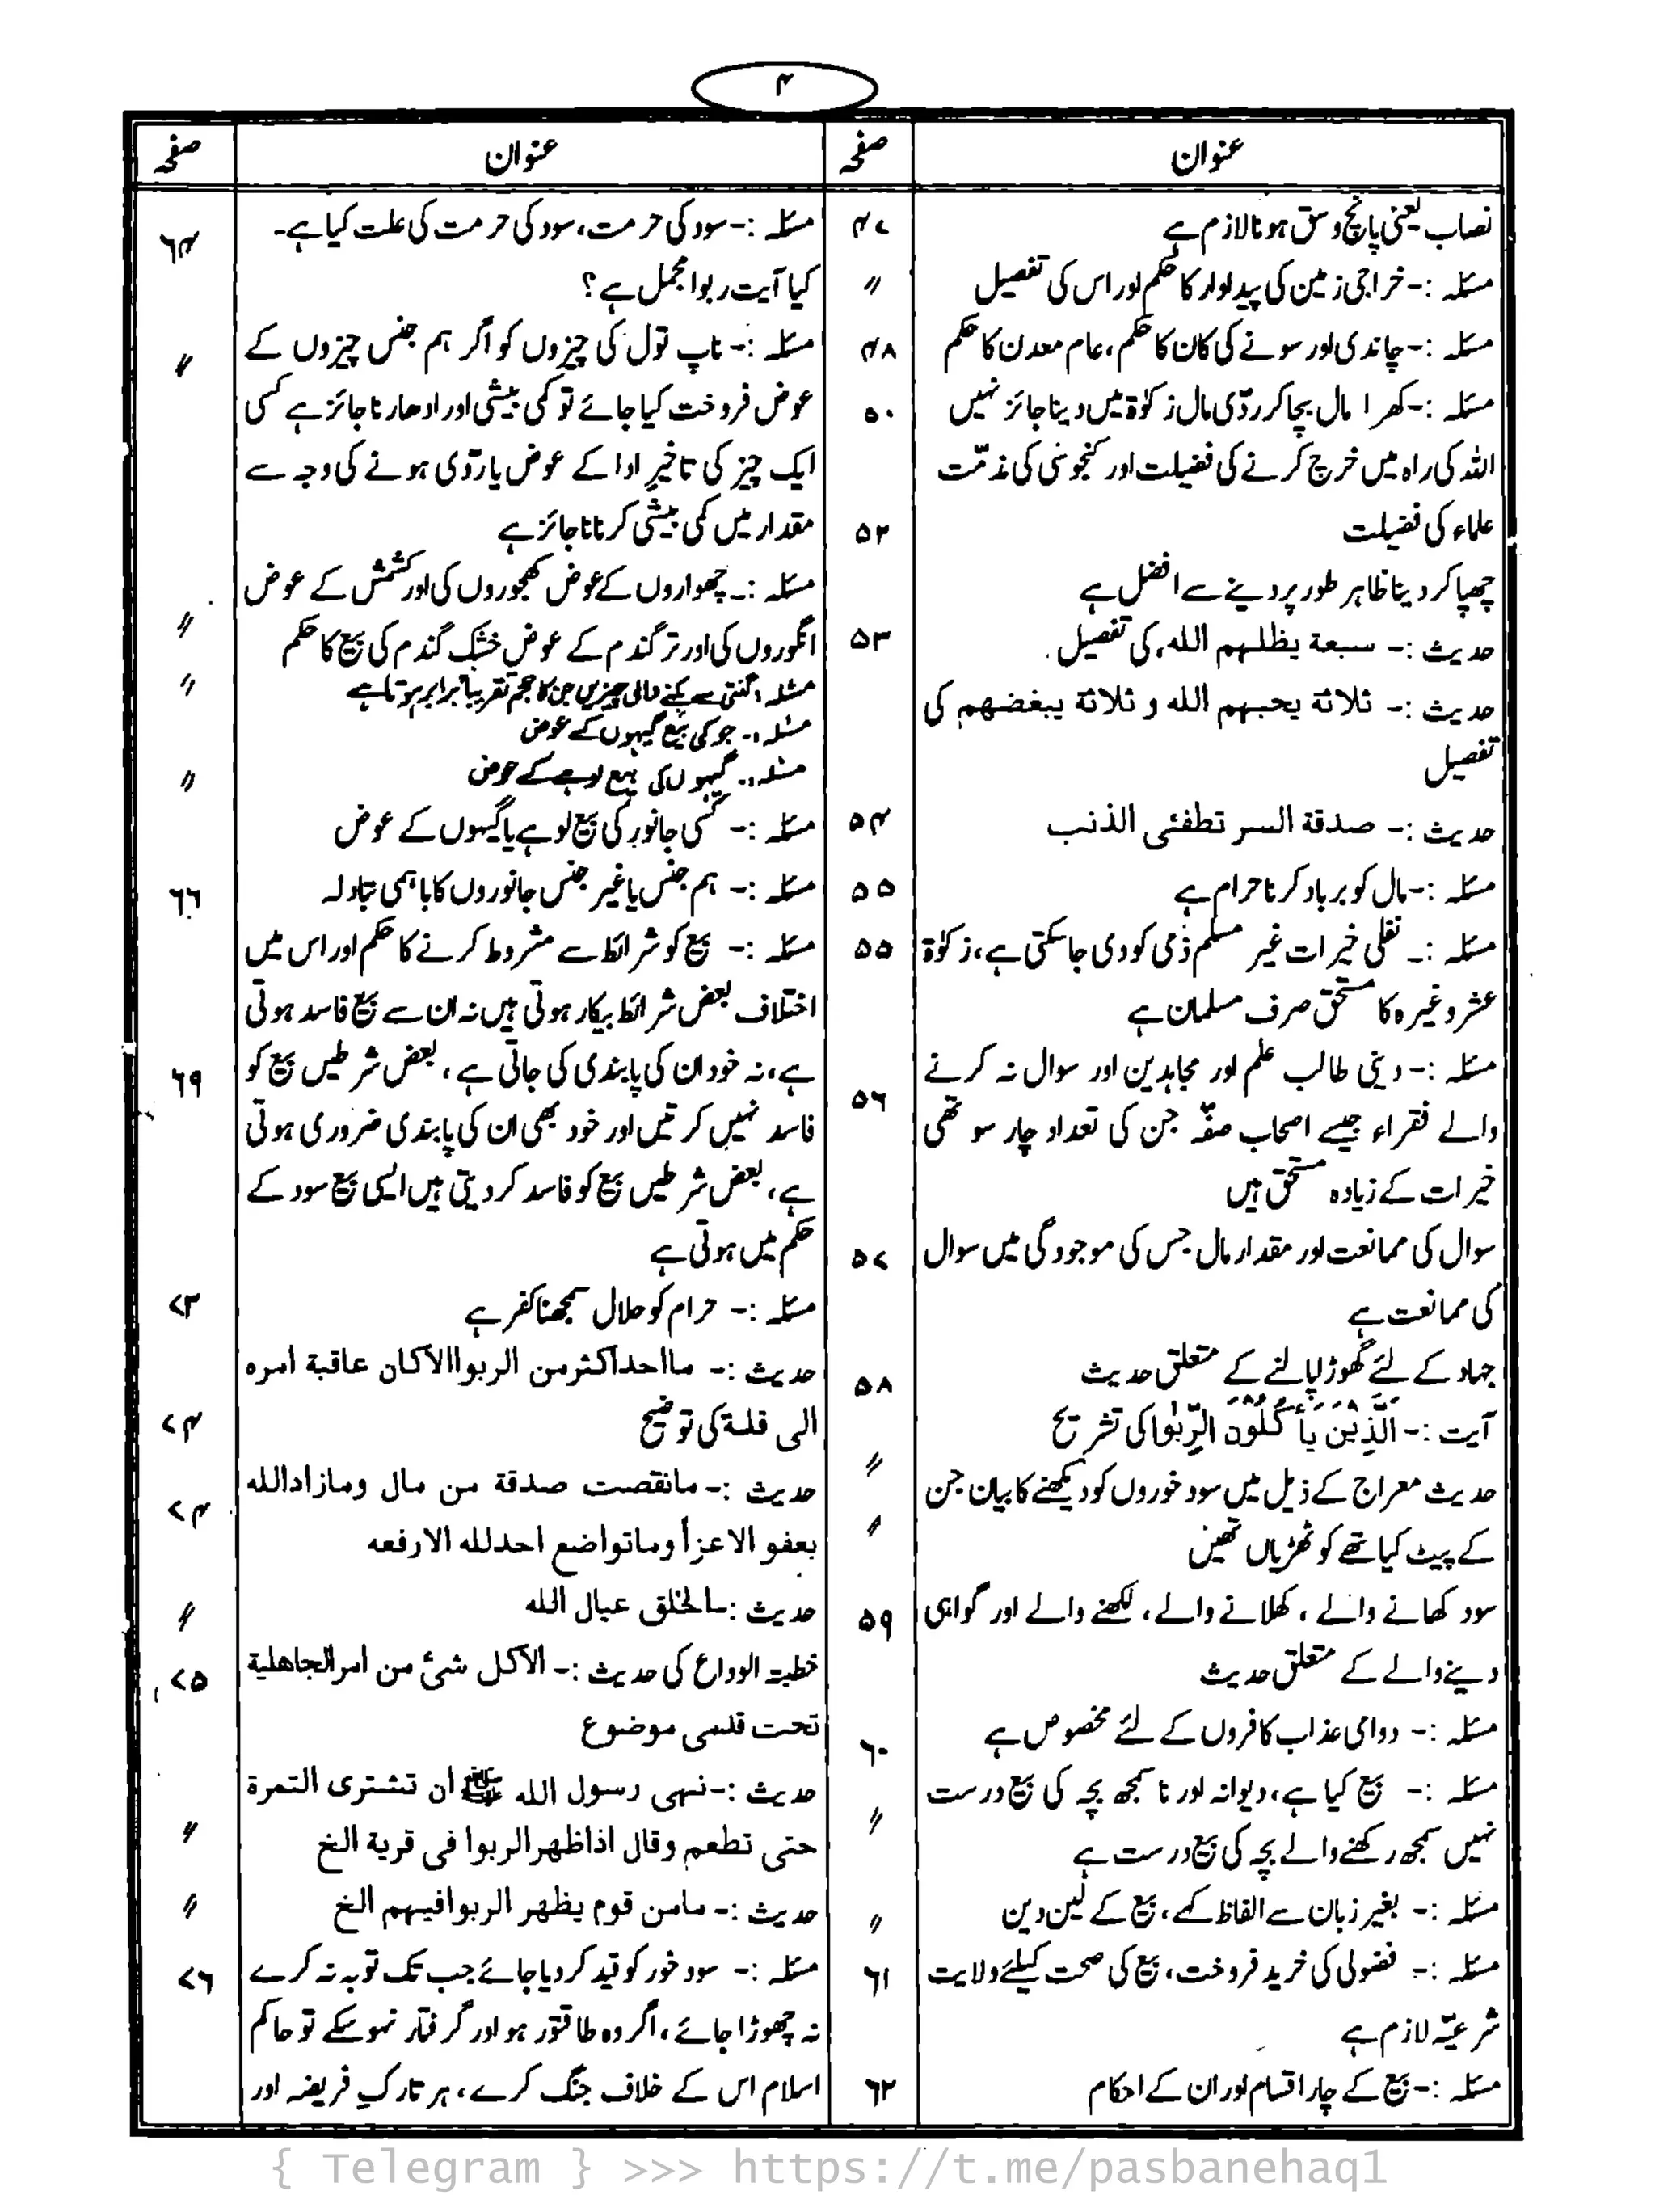 ۴
عنوان صفحہ
نصاب یعنی پانچ وسق ہونا لازم ہے ۴۷
مسئلہ :- خراجی زمین کی پیداوار کا حکم اور اس کی تفصیل ״
مسئلہ :- چاندی اور سونے کی کان کا حکم، عام معدن کا حکم ۴۸
مسئلہ :- کھرا مال بچا کر ردّی مال زکوٰۃ میں دینا جائز نہیں ۵۰
اللہ کی راہ میں خرچ کرنے کی فضیلت اور کنجوسی کی مذمّت
علماء کی فضیلت ۵۲
چھپا کر دینا ظاہر طور پر دینے سے افضل ہے
حدیث :- سبعة یظلہم اللہ، کی تفصیل۔ ۵۳
حدیث :- ثلاثة یحبہم اللہ و ثلاثة یبغضہم کی
تفصیل
حدیث :- صدقة السر تطفئی الذنب ۵۴
مسئلہ :- مال کو برباد کرنا حرام ہے ۵۵
مسئلہ :- نفلی خیرات غیر مسلم ذمی کو دی جا سکتی ہے، زکوٰۃ ۵۵
عشر وغیرہ کا مستحق صرف مسلمان ہے
مسئلہ :- دینی طالب علم اور مجاہدین اور سوال نہ کرنے
والے فقراء جیسے اصحاب صفّہ جن کی تعداد چار سو تھی ۵۶
خیرات کے زیادہ مستحق ہیں
سوال کی ممانعت اور مقدار مال جس کی موجودگی میں سوال ۵۷
کی ممانعت ہے
جہاد کے لئے گھوڑا پالنے کے متعلق حدیث ۵۸
آیت :- اَلَّذِیْنَ یَأْکُلُوْنَ الرِّبٰوا کی تشریح
حدیث معراج کے ذیل میں سود خوروں کو دیکھنے کا بیان جن ״
کے پیٹ کیا تھے کوٹھڑیاں تھیں ״
سود کھانے والے، کھلانے والے، لکھنے والے اور گواہی ۵۹
دینے والے کے متعلق حدیث
مسئلہ :- دوامی عذاب کافروں کے لئے مخصوص ہے ۶۰
مسئلہ :- بیع کیا ہے، دیوانہ اور نا سمجھ بچہ کی بیع درست
نہیں سمجھ رکھنے والے بچہ کی بیع درست ہے ״
مسئلہ :- بغیر زبان سے الفاظ کہے، بیع کے لین دین ״
مسئلہ :- فضولی کی خرید فروخت، بیع کی صحت کیلئے ولایت ۶۱
شرعیّہ لازم ہے
مسئلہ :- بیع کے چار اقسام اور ان کے احکام ۶۲
عنوان صفحہ
مسئلہ :- سود کی حرمت، سود کی حرمت کی علت کیا ہے۔ ۶۴
کیا آیت ربوا مجمل ہے؟
مسئلہ :- ناپ تول کی چیزوں کو اگر ہم جنس چیزوں کے ״
عوض فروخت کیا جائے تو کمی بیشی اور ادھار ناجائز ہے کسی
ایک چیز کی تاخیر ادا کے عوض یا ردّی ہونے کی وجہ سے
مقدار میں کمی بیشی کرنا ناجائز ہے
مسئلہ :- چھواروں کے عوض کھجوروں کی اور کشمش کے عوض
انگوروں کی اور تر گندم کے عوض خشک گندم کی بیع کا حکم ״
مسئلہ :- گنتی سے بکنے والی چیزیں جن کا حجم تقریباً برابر ہوتا ہے ״
مسئلہ :- جو کی بیع گیہوں کے عوض
مسئلہ :- گیہوں کی بیع لوہے کے عوض ״
مسئلہ :- کسی جانور کی بیع لوہے یا گیہوں کے عوض
مسئلہ :- ہم جنس یا غیر جنس جانوروں کا باہمی تبادلہ ۶۶
مسئلہ :- بیع کو شرائط سے مشروط کرنے کا حکم اور اس میں
اختلاف بعض شرائط بیکار ہوتی ہیں نہ ان سے بیع فاسد ہوتی
ہے، نہ خود ان کی پابندی کی جاتی ہے، بعض شرطیں بیع کو ۶۹
فاسد نہیں کرتیں اور خود بھی ان کی پابندی ضروری ہوتی
ہے، بعض شرطیں بیع کو فاسد کر دیتی ہیں ایسی بیع سود کے
حکم میں ہوتی ہے
مسئلہ :- حرام کو حلال سمجھنا کفر ہے ۷۳
حدیث :- مااحد اکثر من الربوا الاکان عاقبة امرہ
الی قلة کی توضیح ۷۴
حدیث :- مانقصت صدقة من مال ومازاداللہ ۷۴
بعفو الا عزاً وماتواضع احدللہ الارفعہ
حدیث :- الخلق عیال اللہ ״
خطبۃ الوداع کی حدیث :- الاکل شئ من امرالجاھلیة ۷۵
تحت قدمی موضوع
حدیث :- نہی رسول اللہ ﷺ ان تشتری التمرة
حتی تطعم وقال اذاظہر الربوا فی قریة الخ ״
حدیث :- مامن قوم یظہر الربوافیہم الخ ״
مسئلہ :- سود خور کو قید کر دیا جائے جب تک توبہ نہ کرے ۷۶
نہ چھوڑا جائے، اگر وہ طاقتور ہو اور گرفتار نہو سکے تو حاکم
اسلام اس کے خلاف جنگ کرے، ہر تارکِ فریضہ اور
{ Telegram } >>> https://t.me/pasbanehaq1